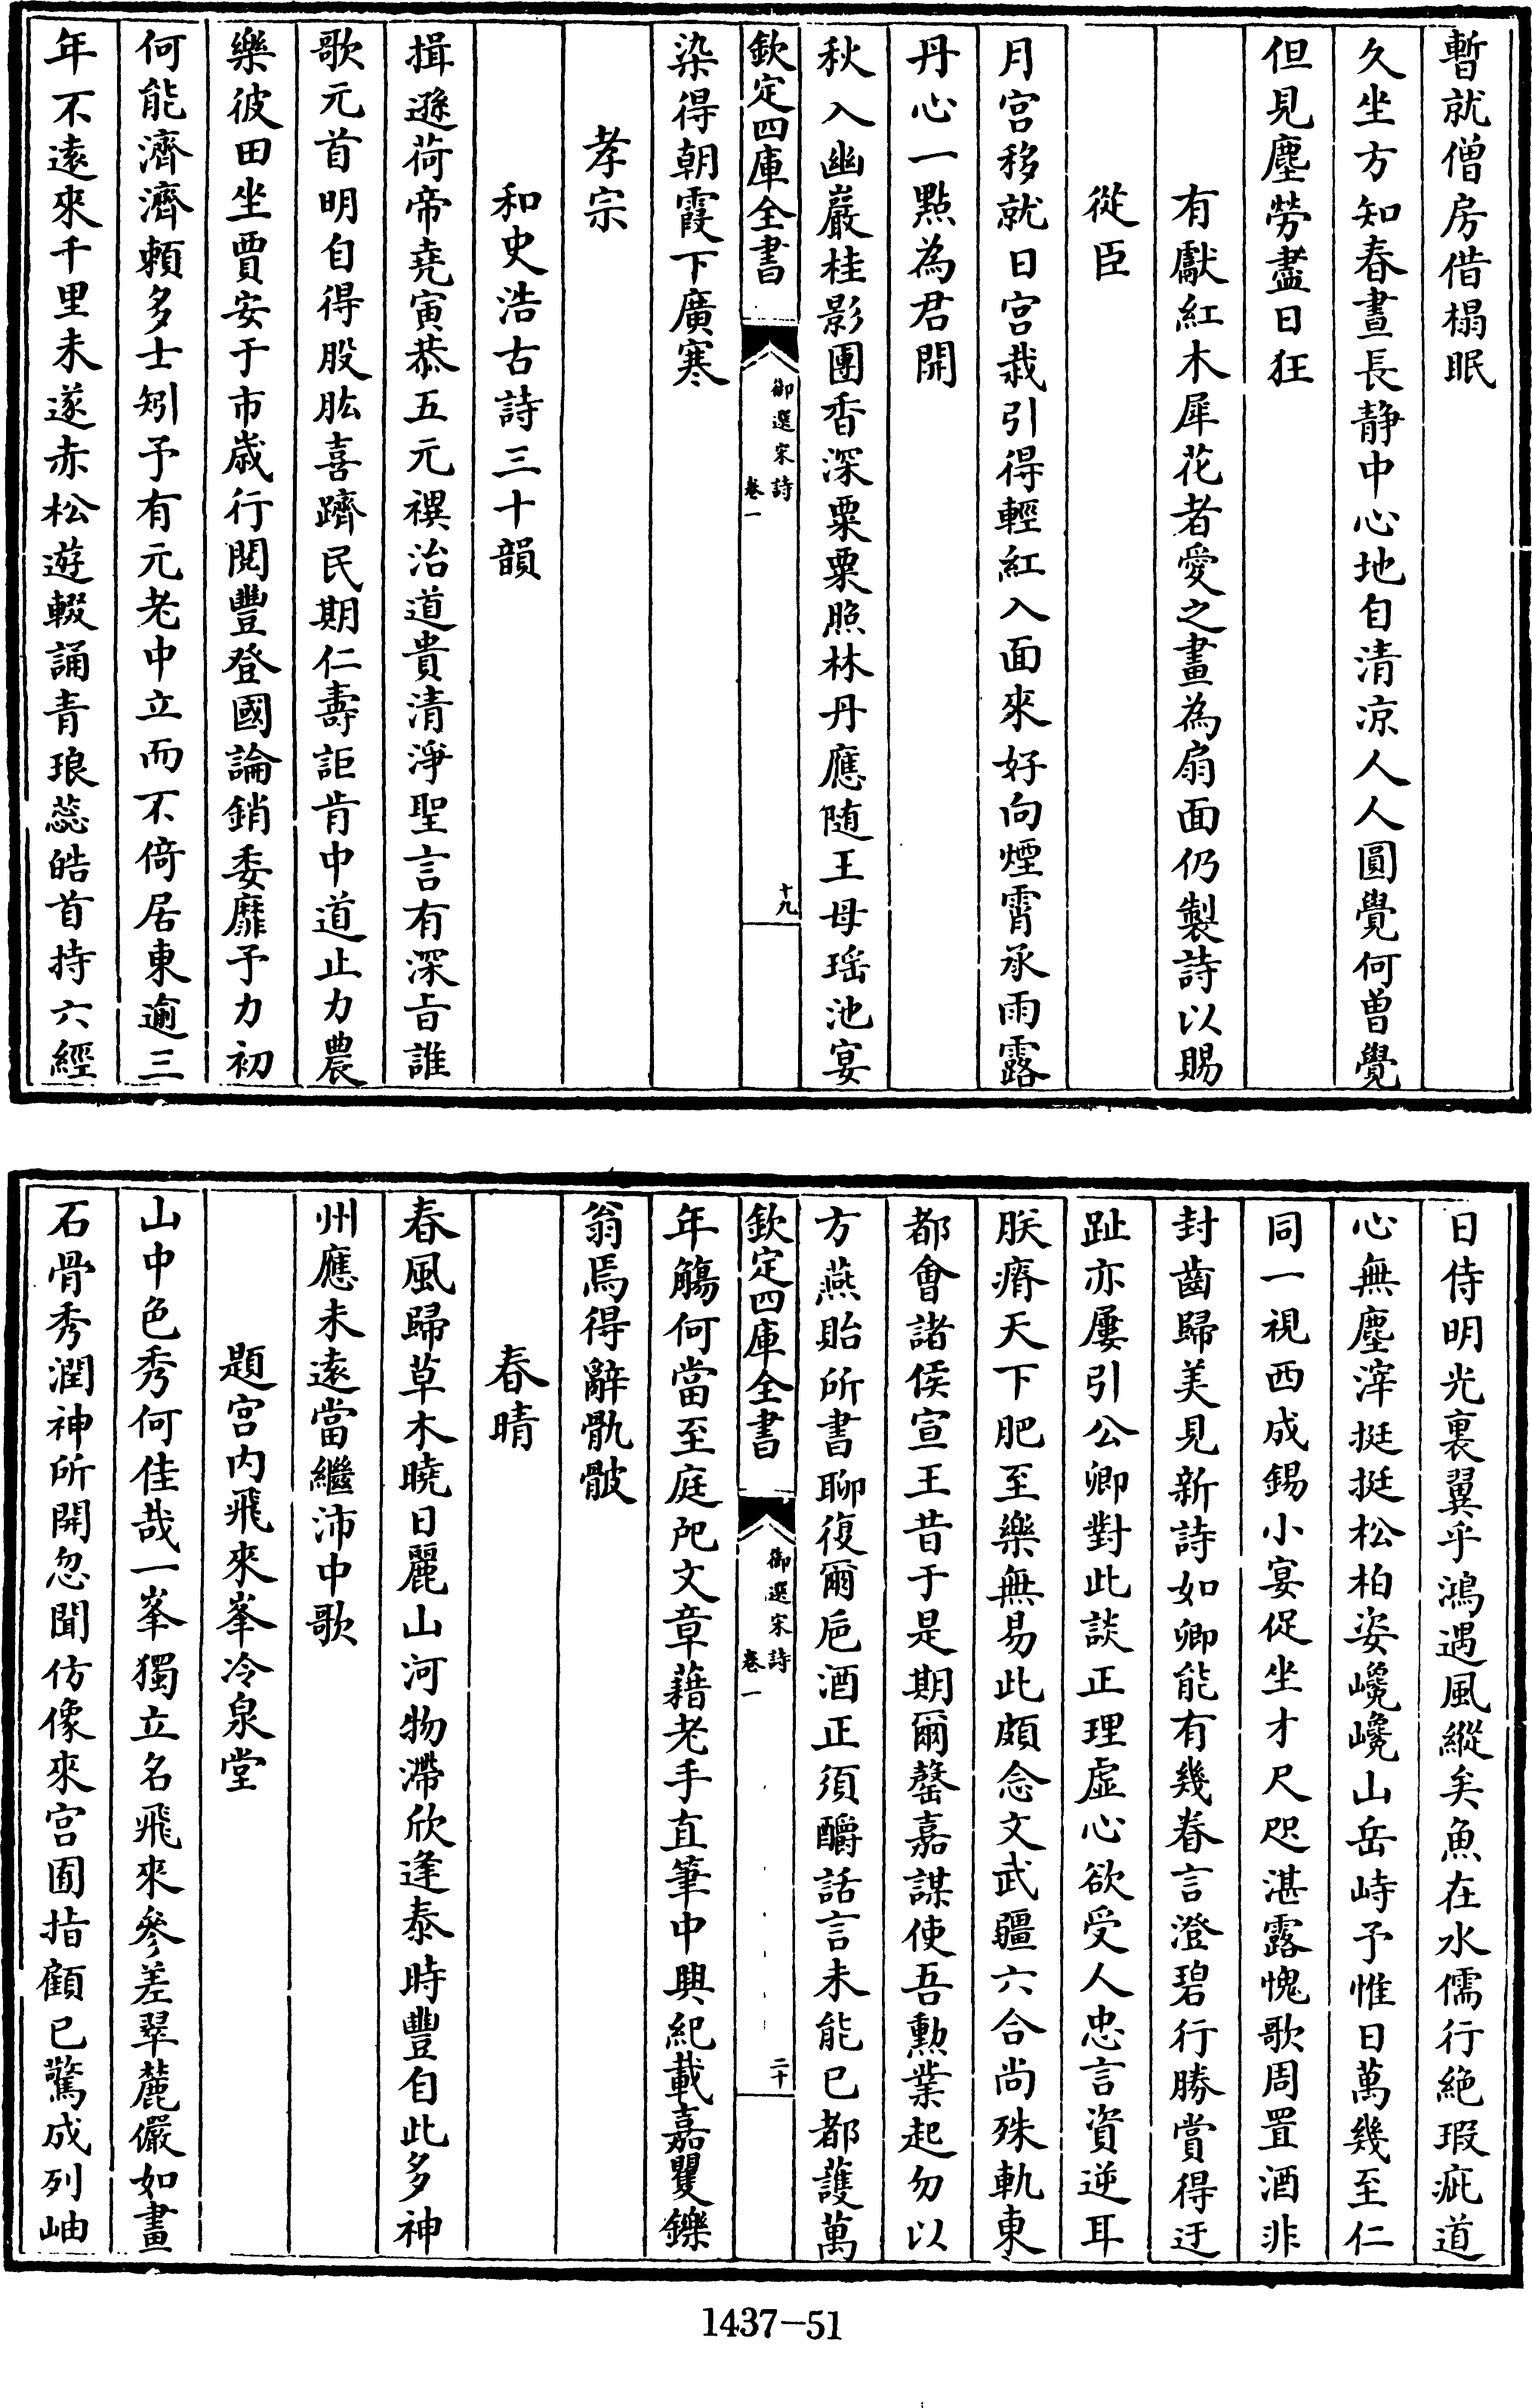 暫就僧房借榻眠
久坐方知春晝長静中心地自清凉人人圓覺何曽覺
但見塵勞盡日狂
有獻紅木犀花者愛之畫為扇面仍製詩以賜
從臣
月宫移就日宫栽引得輕紅入面來好向煙霄承雨露
丹心一點為君開
秋入幽巖桂影團香深粟粟照林丹應随王母瑶池宴
欽定四庫全書
御選宋詩
卷一
十九
染得朝霞下廣寒
孝宗
和史浩古詩三十韻
揖遜荷帝堯寅恭五元禩治道貴清淨聖言有深旨誰
歌元首明自得股肱喜躋民期仁壽詎肯中道止力農
樂彼田坐賈安于市歳行閱豐登國論銷委靡予力初
何能濟濟頼多士矧予有元老中立而不倚居東逾三
年不逺來千里未遂赤松遊輟誦青琅蕊皓首持六經
日侍明光裏翼乎鴻遇風縱矣魚在水儒行絶瑕疵道
心無塵滓挺挺松柏姿巉巉山岳峙予惟日萬幾至仁
同一視西成錫小宴促坐才尺咫湛露愧歌周置酒非
封齒歸美見新詩如卿能有幾眷言澄碧行勝賞得迂
趾亦屢引公卿對此談正理虚心欲受人忠言資逆耳
朕瘠天下肥至樂無易此頗念文武疆六合尚殊軌東
都會諸侯宣王昔于是期爾罄嘉謀使吾勲業起勿以
方燕貽所書聊復爾巵酒正須釂話言未能已都護萬
欽定四庫全書
御選宋詩
卷一
二十
年觴何當至庭戺文章藉老手直筆中興紀載嘉矍鑠
翁焉得辭骩骳
春晴
春風歸草木曉日麗山河物滯欣逢泰時豐自此多神
州應未逺當繼沛中歌
題宫内飛來峯冷泉堂
山中色秀何佳哉一峯獨立名飛來參差翠麓儼如畫
石骨秀潤神所開忽聞仿像來宫囿指顧已驚成列岫
1437-51